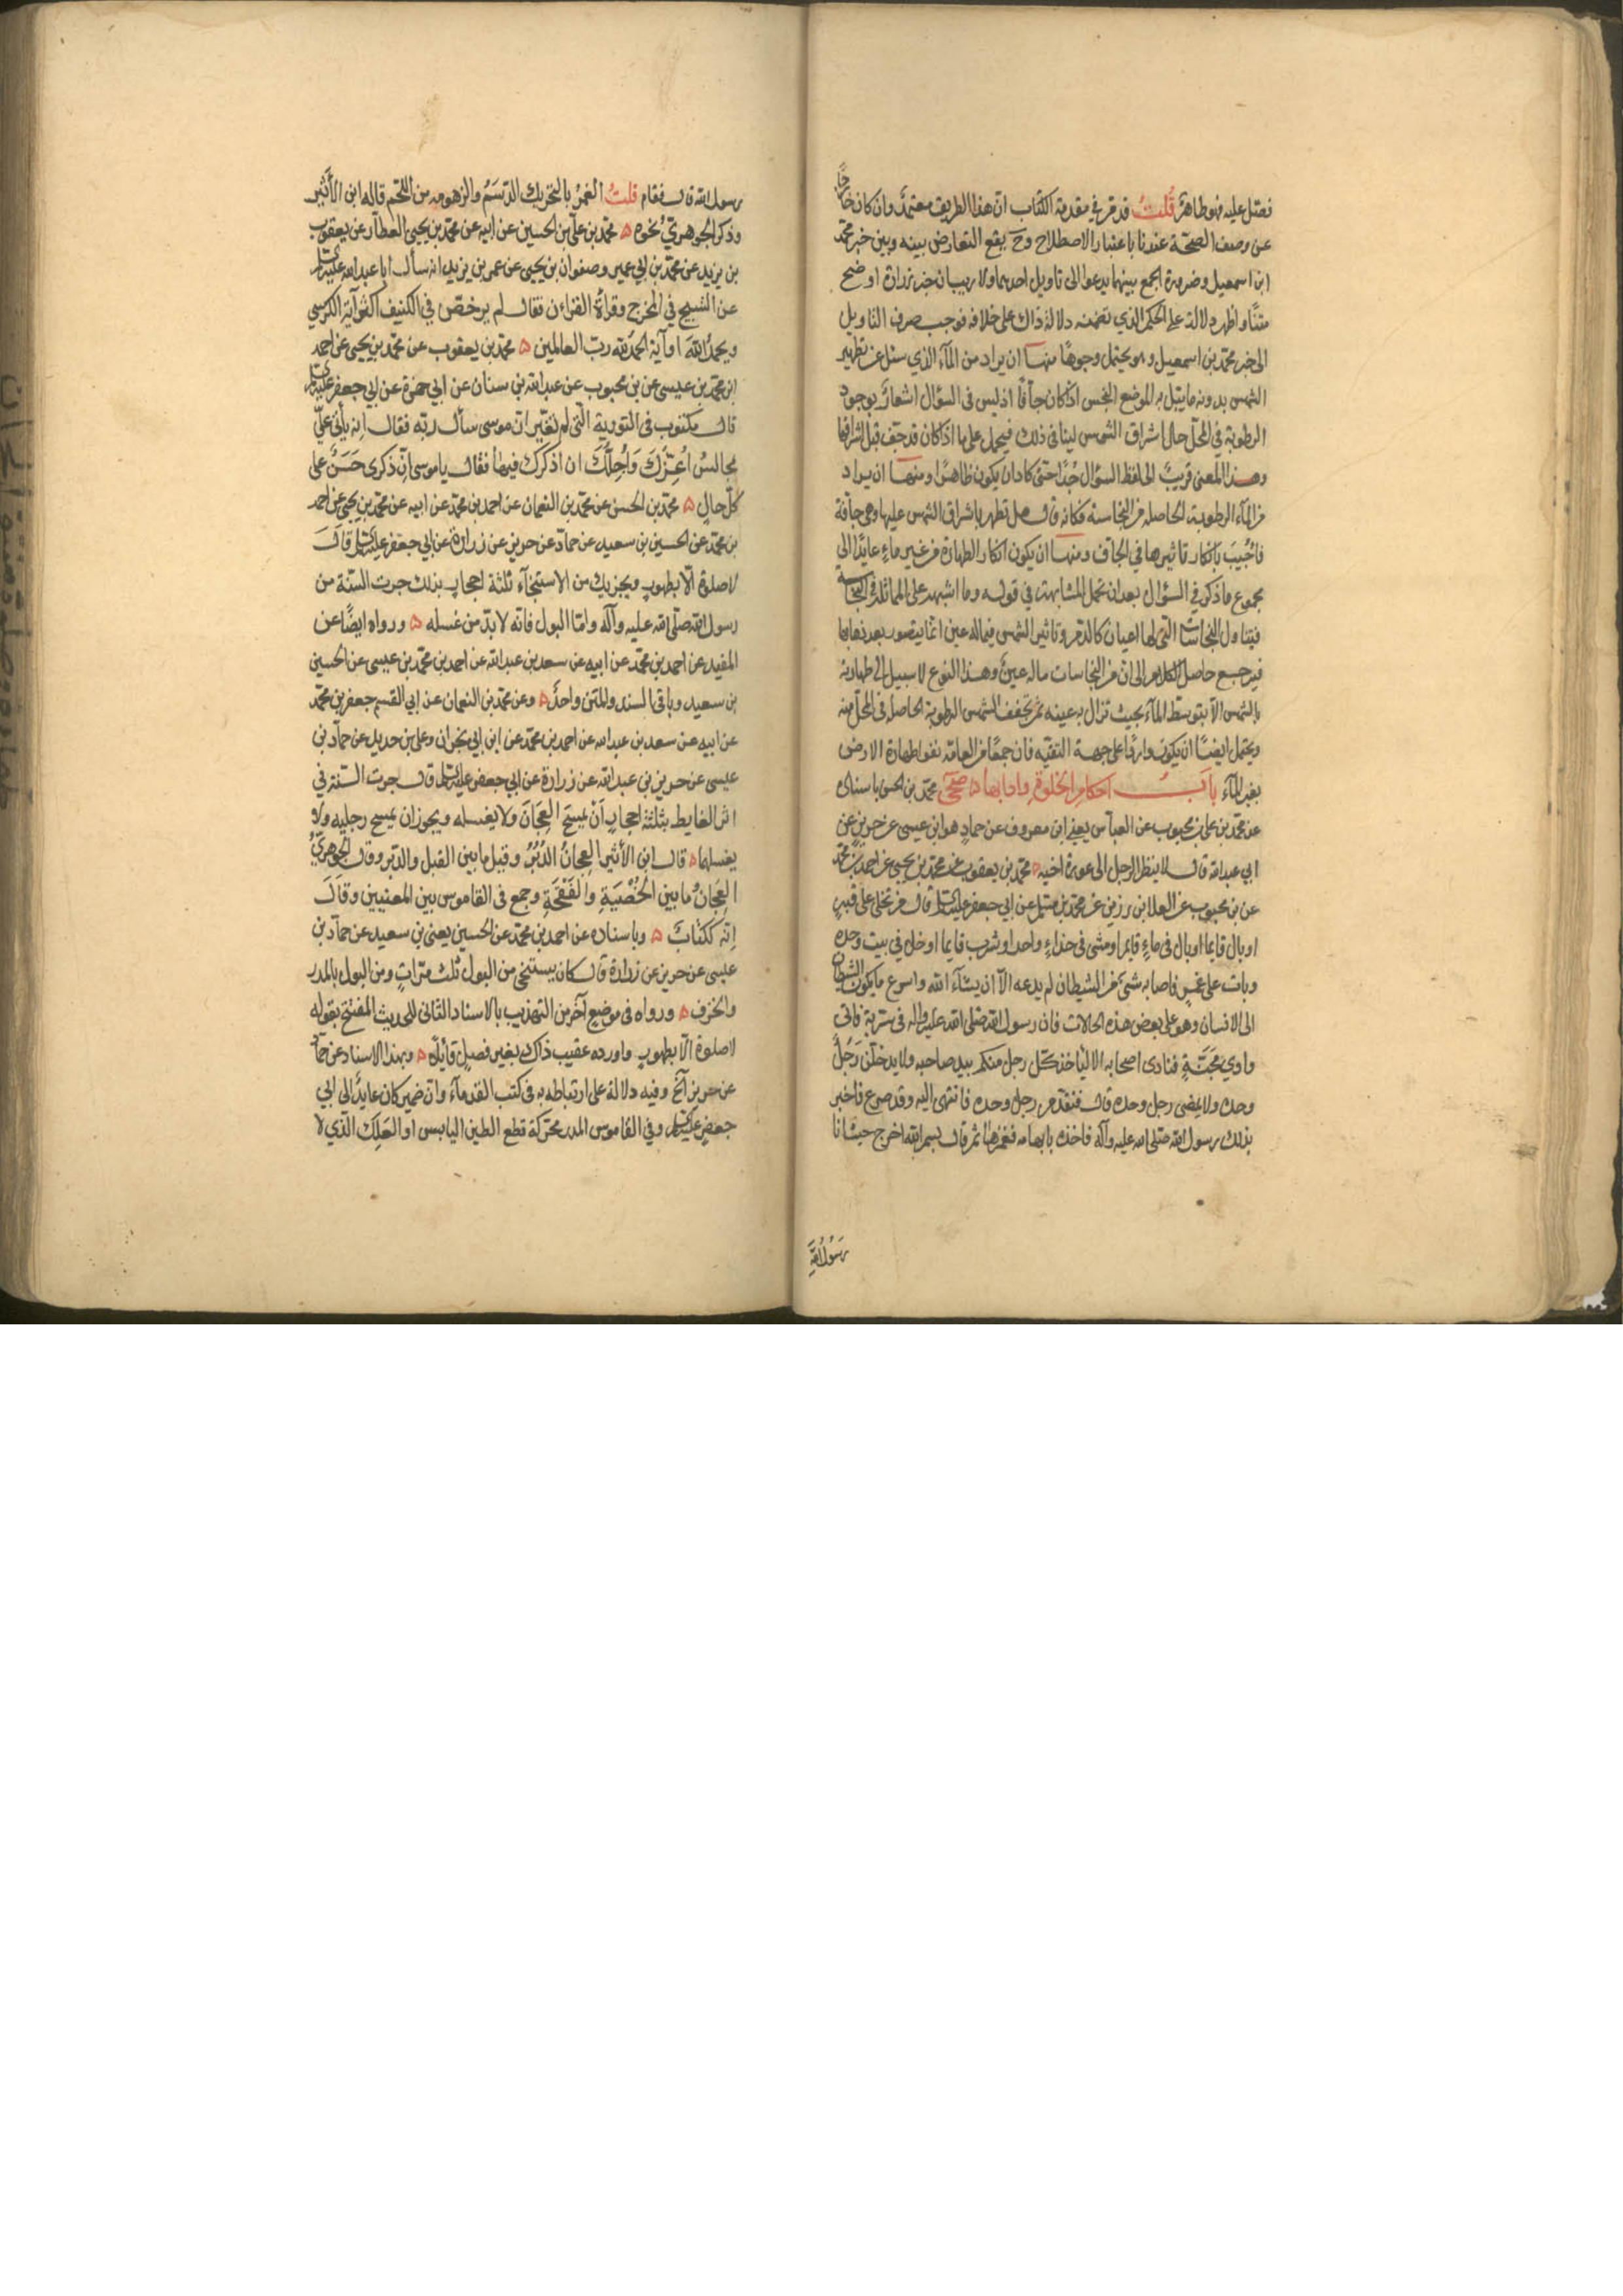 فصل عليه فهو طاهر قُلتُ قد مر في مقدمة الكتاب ان هذا الطريق معتمد وان كان خارجًا
عن وصف الصحة عندنا باعتبار الاصطلاح وح يقع التعارض بينه وبين خبر محمد
ابن اسمعيل وضرورة الجمع بينهما يدعوا الى تاويل احدهما ولا ريب ان خبر زرارة اوضح
متنًا واظهر دلالة على الحكم الذي تضمنه دلالة ذاك على خلافه فوجب صرف التاويل
الى خبر محمد بن اسمعيل وهو يحتمل وجوهًا منها ان يراد من المآء الذي سئل عن تطهير
الشمس بدونه ما يبتل به الموضع النجس اذا كان جآفًا اذ ليس في السؤال اشعار بوجود
الرطوبة في المحل حال اشراق الشمس لينافى ذلك فيحمل على ما اذا كان قد جف قبل اشراقها
وهذا المعنى قريبٌ الى لفظ السؤال جدًا حتى كاد ان يكون ظاهرًا ومنها ان يراد
من المآء الرطوبة الحاصلة من النجاسة فكانه قال هل تطهر باشراق الشمس عليها وهى جآفة
فاُجيبَ بانكار تاثيرها في الجاف ومنها ان يكون انكار الطهارة من غير ماءٍ عايدًا الى
مجموع ما ذكر في السؤال بعد ان تحمل المشابهة في قوله وما اشبهه على المماثلة في النجاسة
فيتناول النجاسات التى لها اعيان كالدم وتاثير الشمس فيما له عين انما يتصور بعد ذهابها
فيرجع حاصل الكلام الى ان من النجاسات ما له عينٌ وهذا النوع لا سبيل الى طهارته
بالشمس الا بتوسط المآء بحيث تزال به عينه ثم تجفف الشمس الرطوبة الحاصلة في المحل منه
ويحتمل ايضًا ان يكون واردًا على جهة التقيه فان جمعًا من العامة نفوا طهارة الارض
بغير المآء بابُ احكام الخلوة وادابها ۵ صحى محمد بن الحسن باسناده
عن محمد بن على بن محبوب عن العباس يعني ابن معروف عن حماد هو ابن عيسى عن حريز عن
ابي عبد الله قال لا ينظر الرجل الى عورة اخيه ۵ محمد بن يعقوب عن محمد بن يحيى عن احمد بن محمد
عن بن محبوب عن العلا بن رزين عن محمد بن مسلم عن ابي جعفر عليه السلم قال من تخلى على قبرٍ
او بال قايما او بال في ماءٍ قايم او مشى في حذاءٍ واحد او شرب قايما او خلا في بيت وحده
وبات على غمرٍ فاصابه شئ من الشيطان لم يدعه الا ان يشآء الله واسرع ما يكون الشيطان
الى الانسان وهو على بعض هذه الحالات فان رسول الله صلى الله عليه واله في سرية فاتى
وادي مَجَنَّةٍ فنادى اصحابه الا ليأخذ كل رجل منكم بيد صاحبه ولا يدخلن رَجلٌ
وحده ولا يمضى رجل وحده قال فتقدم رجل وحده فانتهى اليه وقد صرع فاخبر
بذلك رسول الله صلى الله عليه وآله فاخذ بابهامه فغمزها ثم قال بسم الله اخرج حيث انا
رَسُولُ اللهِ
رسول الله قال فقام قلتُ الغمرُ بالتحريك الدَّسَمُ والزهومه من اللحم قاله ابن الأثير
وذكر الجوهريّ نحوه ۵ محمد بن على بن الحسين عن ابيه عن محمد بن يحيى العطار عن يعقوب
بن يزيد عن محمد بن ابي عمير وصفوان بن يحيى عن عمر بن يزيد انه سأل ابا عبد الله عليه السلم
عن التسبيح في المخرج وقراءة القراءن فقال لم يرخص في الكنيف اكثر آية الكرسي
ويحمدُ اللهَ او آية الحمد لله رب العالمين ۵ محمد بن يعقوب عن محمد بن يحيى عن احمد
ابن محمد بن عيسى عن بن محبوب عن عبد الله بن سنان عن ابي حمزة عن ابي جعفر عليه السلم
قال مكتوب في التورية التى لم تغير ان موسى سأل ربه فقال انه يأتى علىّ
مجالسُ اُعِزُّكَ وَاُجِلُّكَ ان اذكرك فيها فقال يا موسى اِنّ ذكرى حَسَنٌ على
كل حالٍ ۵ محمد بن الحسن عن محمد بن النعمان عن احمد بن محمد عن ابيه عن محمد بن يحيى عن احمد
بن محمد عن الحسين بن سعيد عن حماد عن حريز عن زرارة عن ابي جعفر عليه السلم قال
لا صلوة الا بطهورٍ ويجزيك من الاستنجآء ثلثة احجارٍ بذلك جرت السّنة من
رسول الله صلى الله عليه وآله وامّا البول فانه لا بد من غسله ۵ ورواه ايضًا عن
المفيد عن احمد بن محمد عن ابيه عن سعد بن عبد الله عن احمد بن محمد بن عيسى عن الحسين
بن سعيد وباقى السند والمتن واحدٌ ۵ وعن محمد بن النعمان عن ابي القسم جعفر بن محمد
عن ابيه عن سعد بن عبد الله عن احمد بن محمد عن ابن ابي نجران وعلى بن حديد عن حماد بن
عيسى عن حريز بن عبد الله عن زرارة عن ابي جعفر عليه السلم قال جرت السّنة في
اثر الغايط بثلثة احجارٍ اَنْ يمسحَ العِجَانَ ولا يغسله ويجوز ان يمسح رجليه ولا
يغسلهما ۵ قال ابن الأثير العِجانُ الدُّبُرُ وقيل ما بين القبل والدبر وقال الجوهريُّ
العِجَانُ ما بين الخُصْيَةِ والفَقْحَةِ وجمع في القاموس بين المعنيين وقَالَ
اِنّه ككتابٍ ۵ وباسناده عن احمد بن محمد عن الحسين يعنى بن سعيد عن حماد بن
عيسى عن حريز عن زرارة قال كان يستنجى من البول ثلث مرّاتٍ ومن البول بالمدر
والخزف ۵ ورواه في موضع آخر من التهذيب بالاسناد الثانى للحديث المفتتح بقوله
لا صلوة الا بطهورٍ واورده عقيب ذاك بغير فصلٍ قآئلًا ۵ وبهذا الاسناد عن حماد
عن حريز الخ وفيه دلالة على ارتباطه به في كتب القدمآء وان ضمير كان عايدٌ الى ابي
جعفر عليه السلم وفي القاموس المدر محركة قطع الطين اليابس او العَلِكِ الذي لا